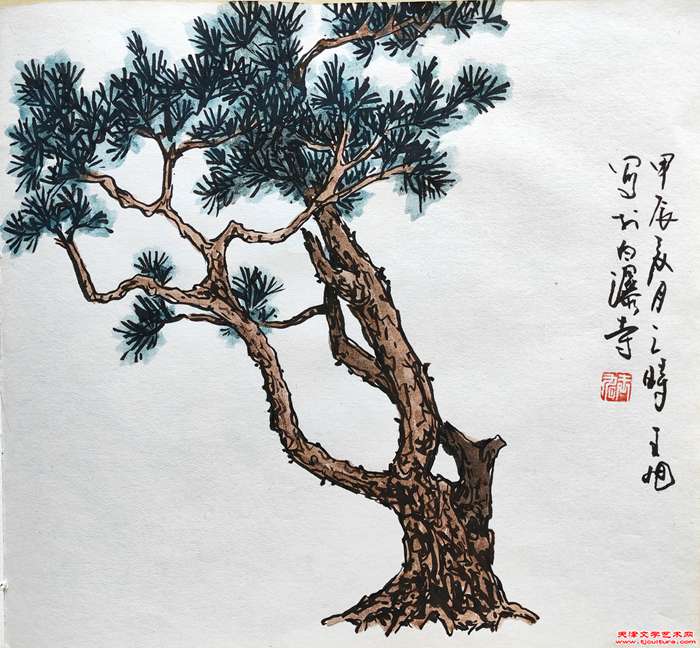 甲辰夏月之時 王旭
写於白瀑寺
天津文学艺术网
www.tjculture.com